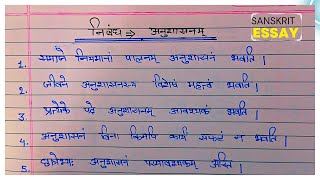 SANSKRIT
ESSAY
निबंध ⇒ अनुशासनम्
1. समाजे नियमानां पालनम् अनुशासनं भवति।
2. जीवने अनुशासनस्य विशेषं महत्वं भवति।
3. प्रत्येके पदे अनुशासनम् आवश्यकं भवति।
4. अनुशासनं विना किमपि कार्यं सफलं न भवति।
5. छात्रेभ्यः अनुशासनं परमावश्यकम् अस्ति।